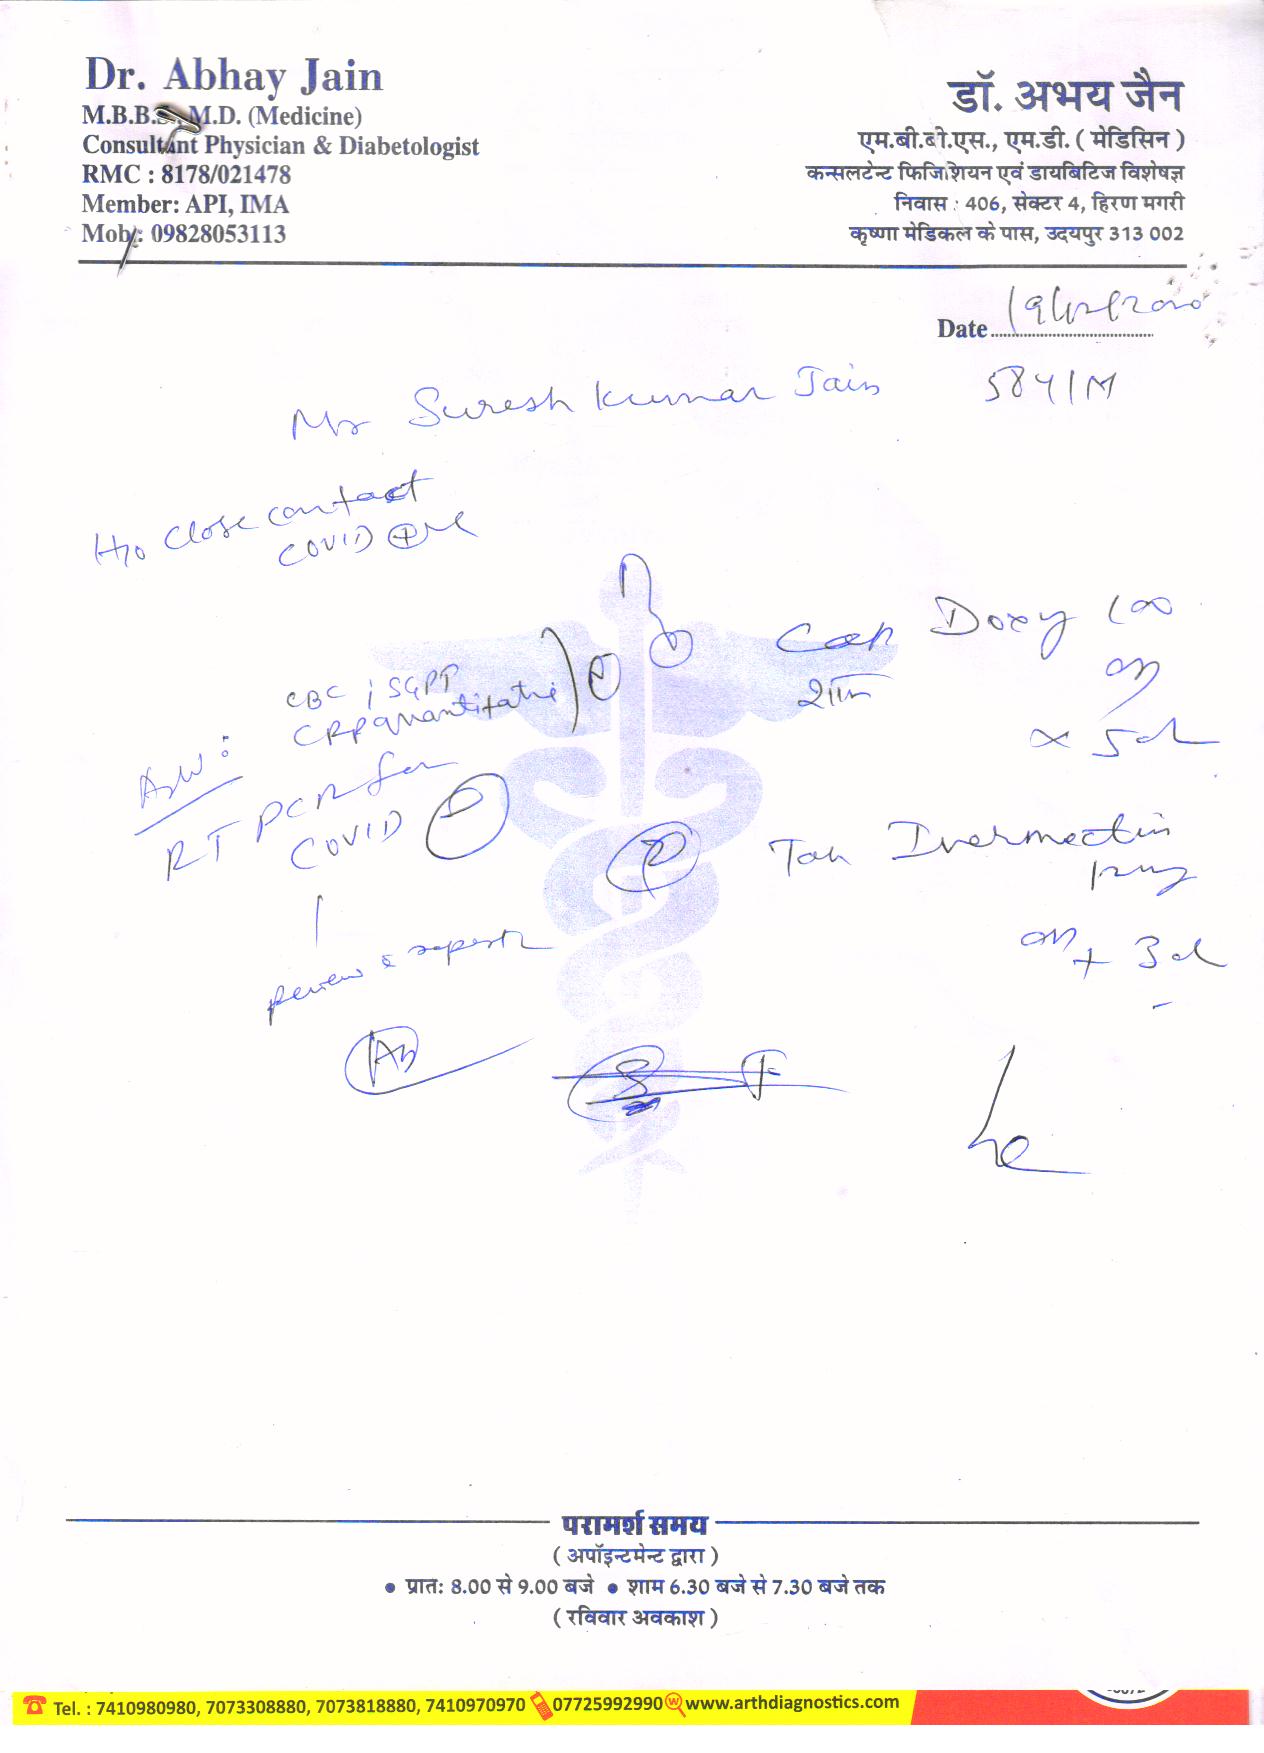 Dr. Abhay Jain
M.B.B.S., M.D. (Medicine)
Consultant Physician & Diabetologist
RMC : 8178/021478
Member: API, IMA
Mob.: 09828053113
डॉ. अभय जैन
एम.बी.बी.एस., एम.डी. ( मेडिसिन )
कन्सलटेन्ट फिजिशियन एवं डायबिटिज विशेषज्ञ
निवास : 406, सेक्टर 4, हिरण मगरी
कृष्णा मेडिकल के पास, उदयपुर 313 002
Date
Mr Suresh Kumar Jain 58y/M
H/o close contact
COVID +ve
Cap Doxy 100
CBC ; SGPT
CRP quantitative
शाम
x 5d
Adv:
RT PCR for
COVID
Tab Ivermectin
review & reports
x 3d
परामर्श समय
( अपॉइन्टमेन्ट द्वारा )
• प्रातः 8.00 से 9.00 बजे • शाम 6.30 बजे से 7.30 बजे तक
( रविवार अवकाश )
Tel. : 7410980980, 7073308880, 7073818880, 7410970970 07725992990 www.arthdiagnostics.com